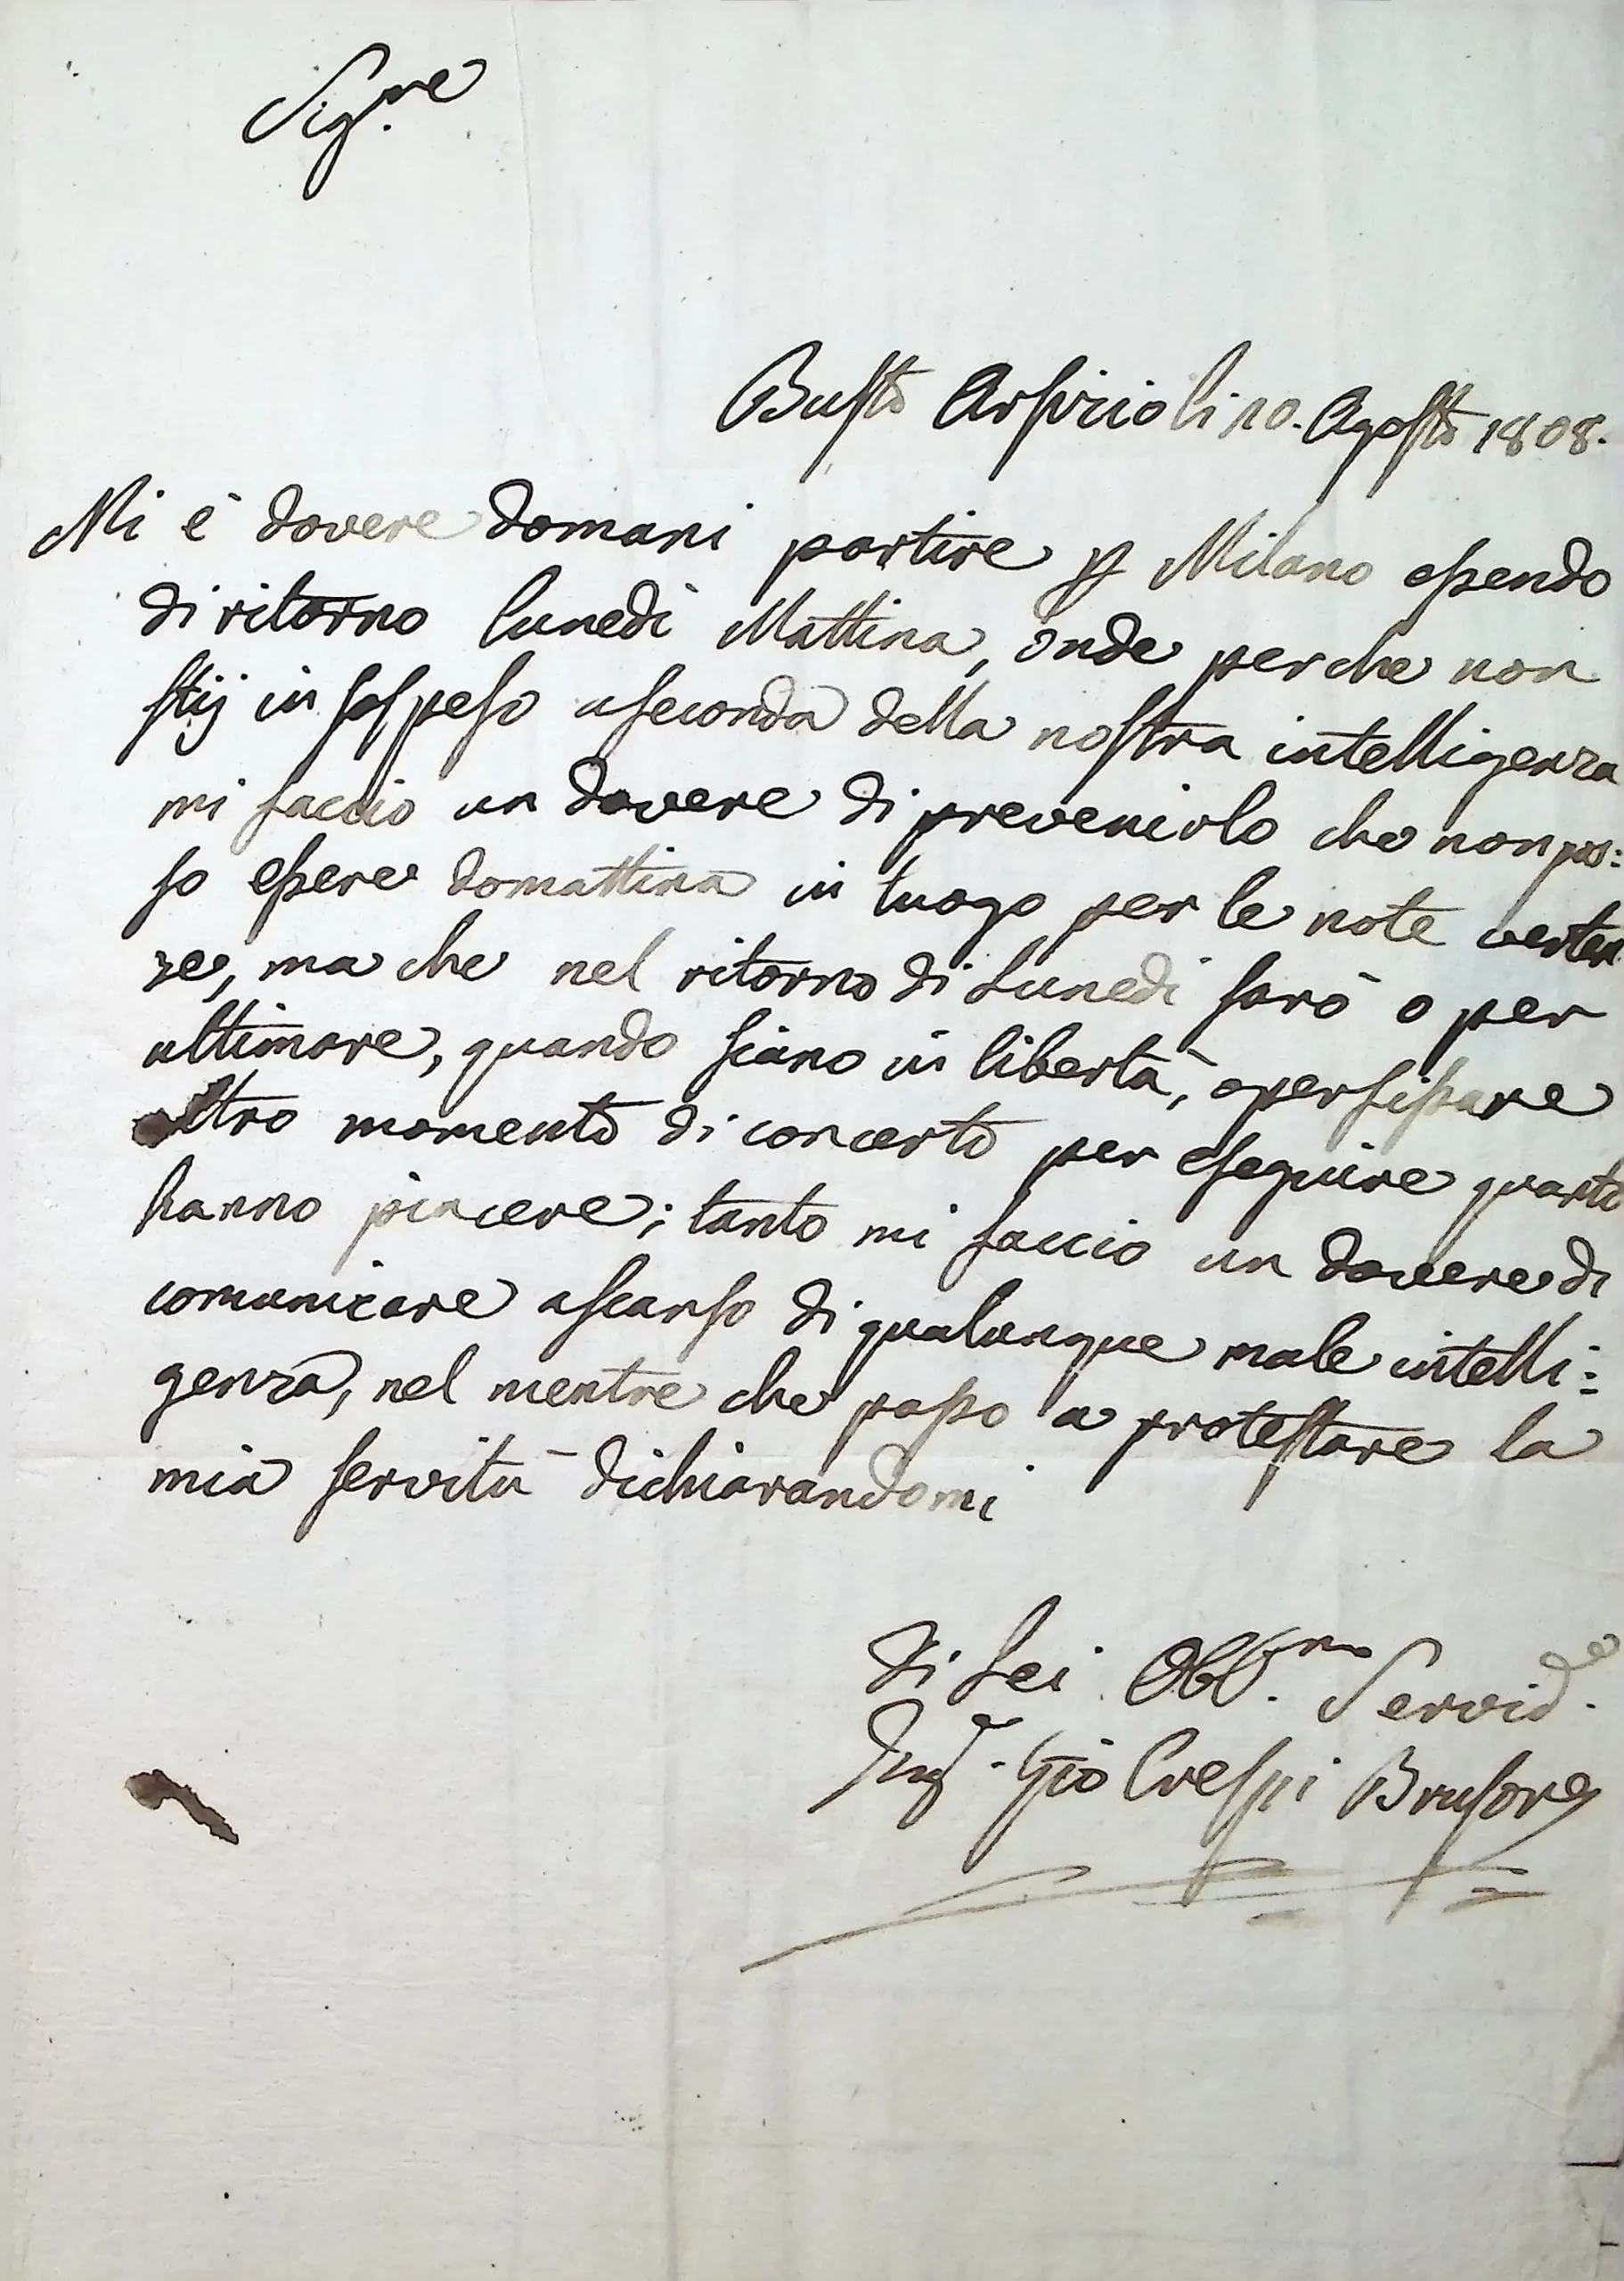 Sig.re
Busto Arsizio li 10. Agosto 1808.
Mi è dovere domani partire p Milano essendo
di ritorno lunedì Mattina, onde perche non
stij in sospeso a seconda della nostra intelligenza
mi faccio un dovere di prevenirlo che non pos:
so essere domattina in luogo per le note verten
ze, ma che nel ritorno di Lunedi sarò o per
ultimare, quando siano in libertà, o per fissare
altro momento di concerto per eseguire quanto
hanno piacere; tanto mi faccio un dovere di
comunicare a scanso di qualunque male intelli:
genza, nel mentre che passo a protestare la
mia servitù dichiarandomi
Di Lei Obb.mo Servid.e
Ing.e Gio Crespi